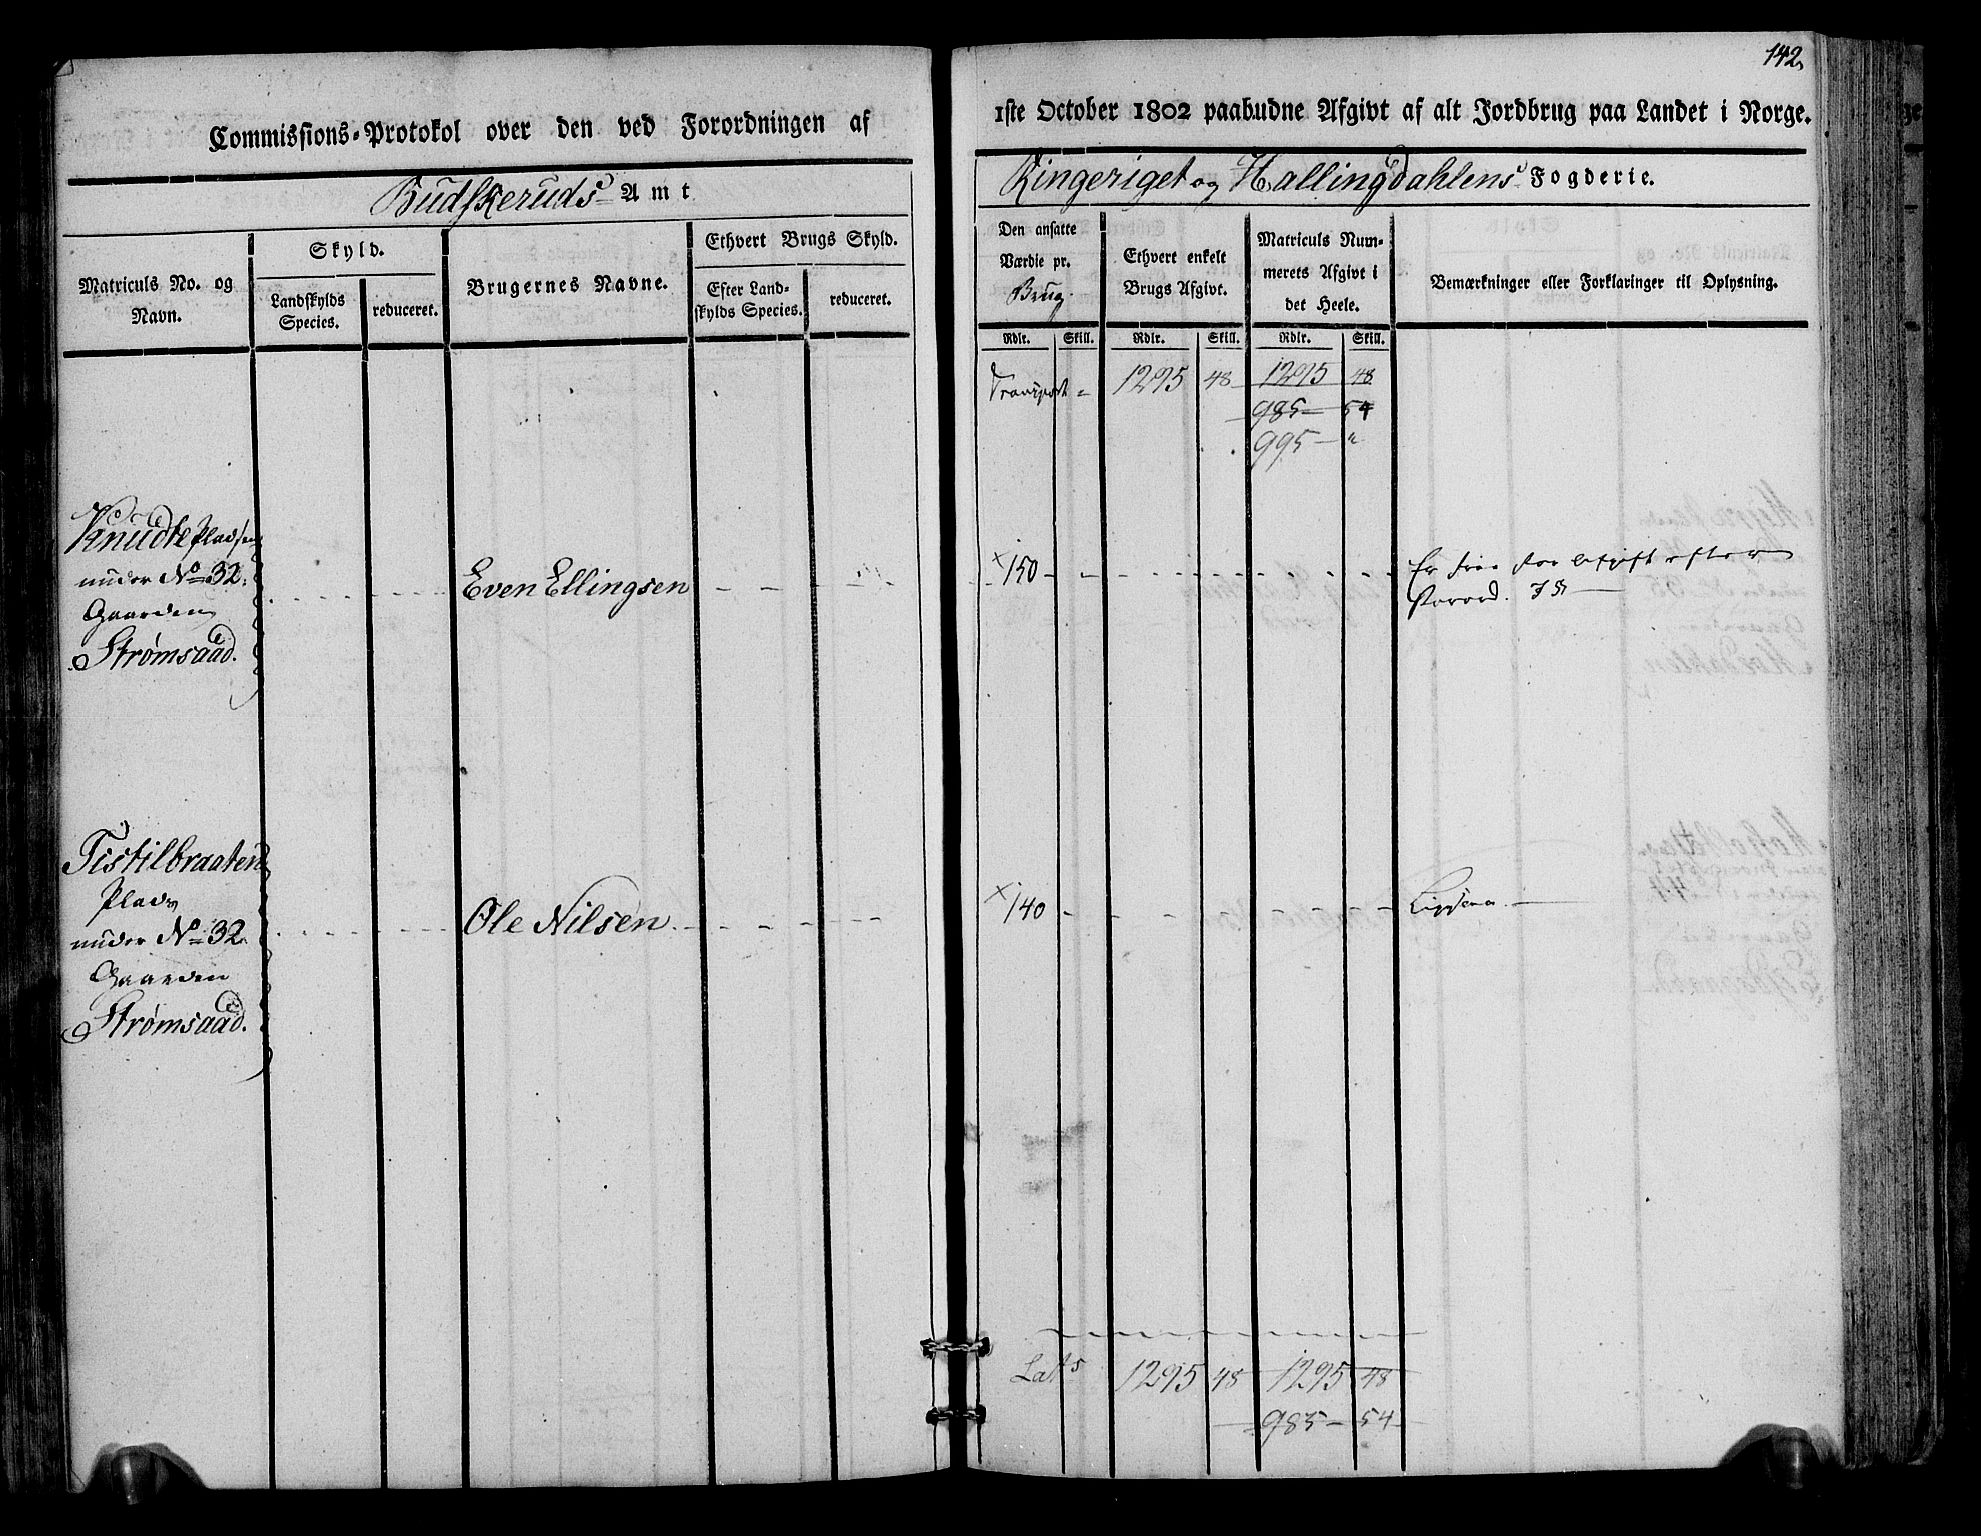 142.
Commissions-Protokol over den ved Forordningen af
1ste October 1802 paabudne Afgivt af alt Jordbrug paa Landet i Norge.
Budskeruds Amt
Ringeriget og Hallingdahlens Fogderie.
Matriculs No. og
Navn.
Skyld.
Landskylds
Species.
reduceret.
Brugernes Navne.
Ethvert Brugs Skyld.
Efter Land-
skylds Species.
reduceret.
Den ansatte
Værdie pr.
Brug.
Ethvert enkelt
Brugs Afgivt.
Matriculs Num-
merets Afgivt i
det Heele.
Bemærkninger eller Forklaringer til Oplysning.
Rdlr. Skill. Rdlr. Skill. Rdlr. Skill.
Transport = 1295 48 1295 48
985 54
995 "
Knudte Pladsen
under No 32.
Gaarden
Strømsaad.
Even Ellingsen
150
Er frie for Afgift efter
Forord.
Tistilbraaten
Plads
under No 32.
Gaarden
Strømsaad.
Ole Nilsen
140
Ligesaa
Lats 1295 48 1295 48
985 54